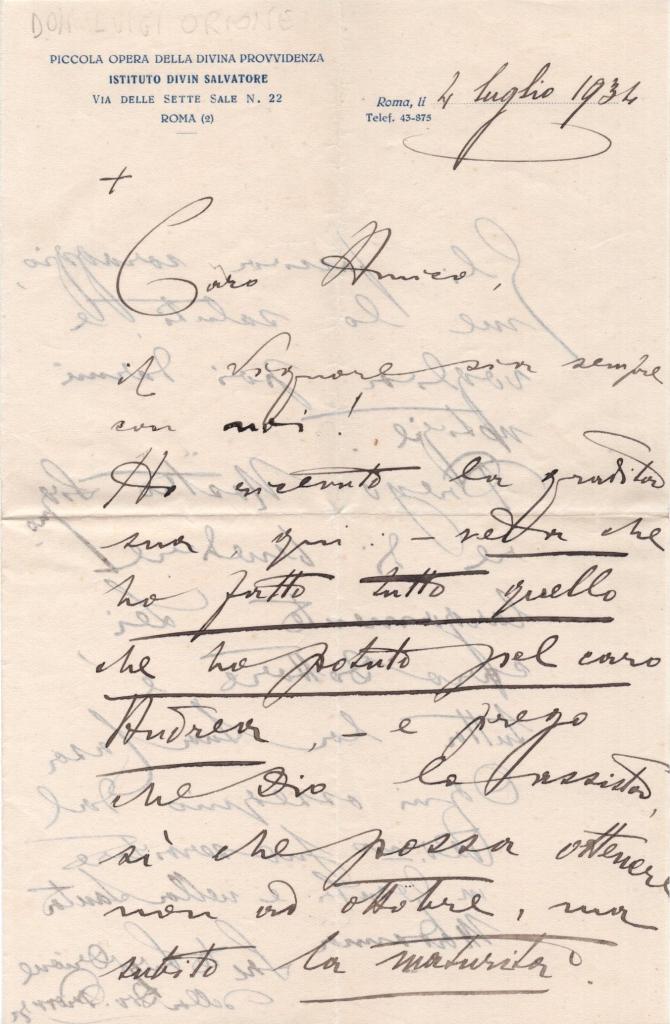 DON LUIGI ORIONE
PICCOLA OPERA DELLA DIVINA PROVVIDENZA
ISTITUTO DIVIN SALVATORE
VIA DELLE SETTE SALE N. 22
ROMA (2)
Roma, li 4 luglio 1934
Telef. 43-875
+
Caro Amico,
il Signore sia sempre
con noi!
Ho ricevuto la gradita
sua qui: - veda che
ho fatto tutto quello
che ho potuto pel caro
Andrea, - e prego
che Dio lo assista,
sì che possa ottenere
non ad ottobre, ma
subito la maturità.